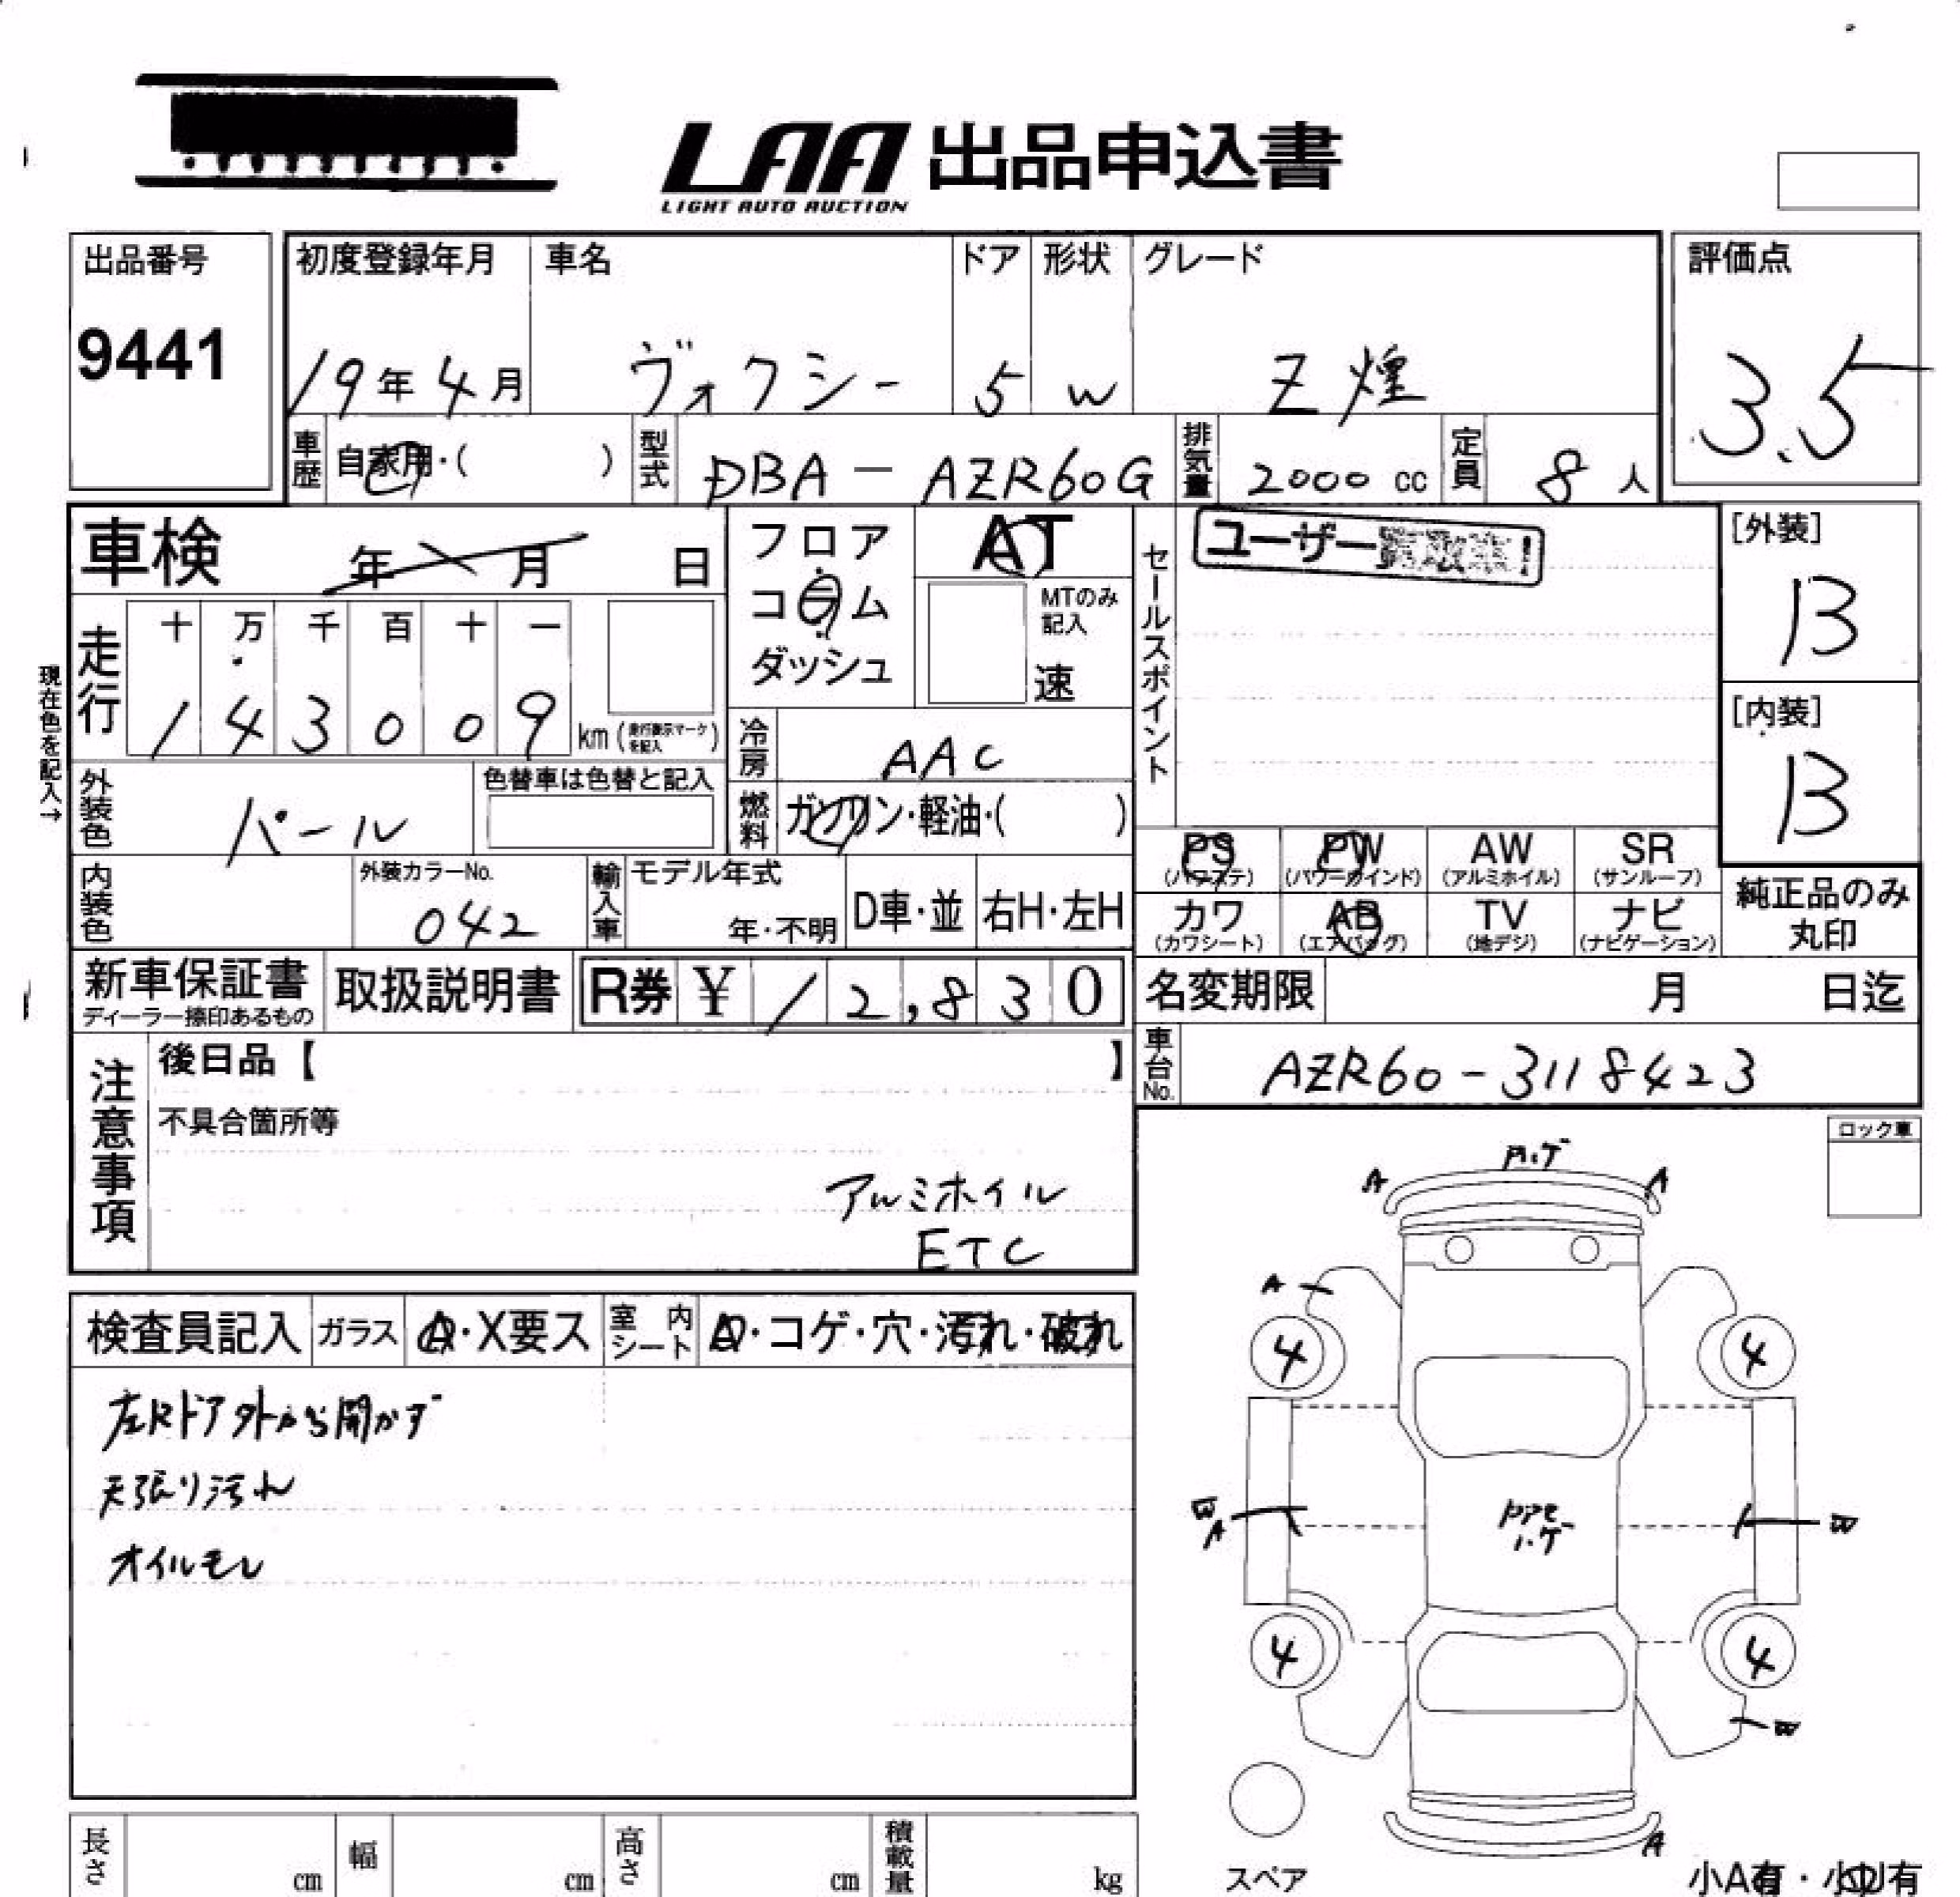 LAA 出品申込書
LIGHT AUTO AUCTION
出品番号
9441
初度登録年月
19年4月
車名
ヴォクシー
ドア
5
形状
W
グレード
Z煌
評価点
3.5
車歴
自家用・( )
型式
DBA-AZR60G
排気量
2000 cc
定員
8 人
車検 年 月 日
フロア
コラム
ダッシュ
AT
MTのみ記入
速
セールスポイント
ユーザー
[外装]
B
[内装]
B
現在色を記入→
走行
十 万 千 百 十 一
1 4 3 0 0 9
km (走行表示マークを記入)
冷房
AAC
外装色
パール
色替車は色替と記入
燃料
ガソリン・軽油・( )
PS
(パワステ)
PW
(パワーウインド)
AW
(アルミホイル)
SR
(サンルーフ)
内装色
外装カラーNo.
042
輸入車
モデル年式
年・不明
D車・並
右H・左H
カワ
(カワシート)
AB
(エアバッグ)
TV
(地デジ)
ナビ
(ナビゲーション)
純正品のみ
丸印
新車保証書
ディーラー捺印あるもの
取扱説明書
R券 ¥ 12,830
名変期限 月 日迄
車台No.
AZR60-3118423
注意事項
後日品【 】
不具合箇所等
アルミホイル
ETC
ロック車
ハゲ
A A
A
4 4
W
A
W
ハゲ
4 4
W
A
検査員記入
ガラス
A・X要ス
室内シート
A・コゲ・穴・汚れ・破れ
左Rドア外から開かず
天張り汚れ
オイルモレ
長さ cm
幅 cm
高さ cm
積載量 kg
スペア
小A有・小U有